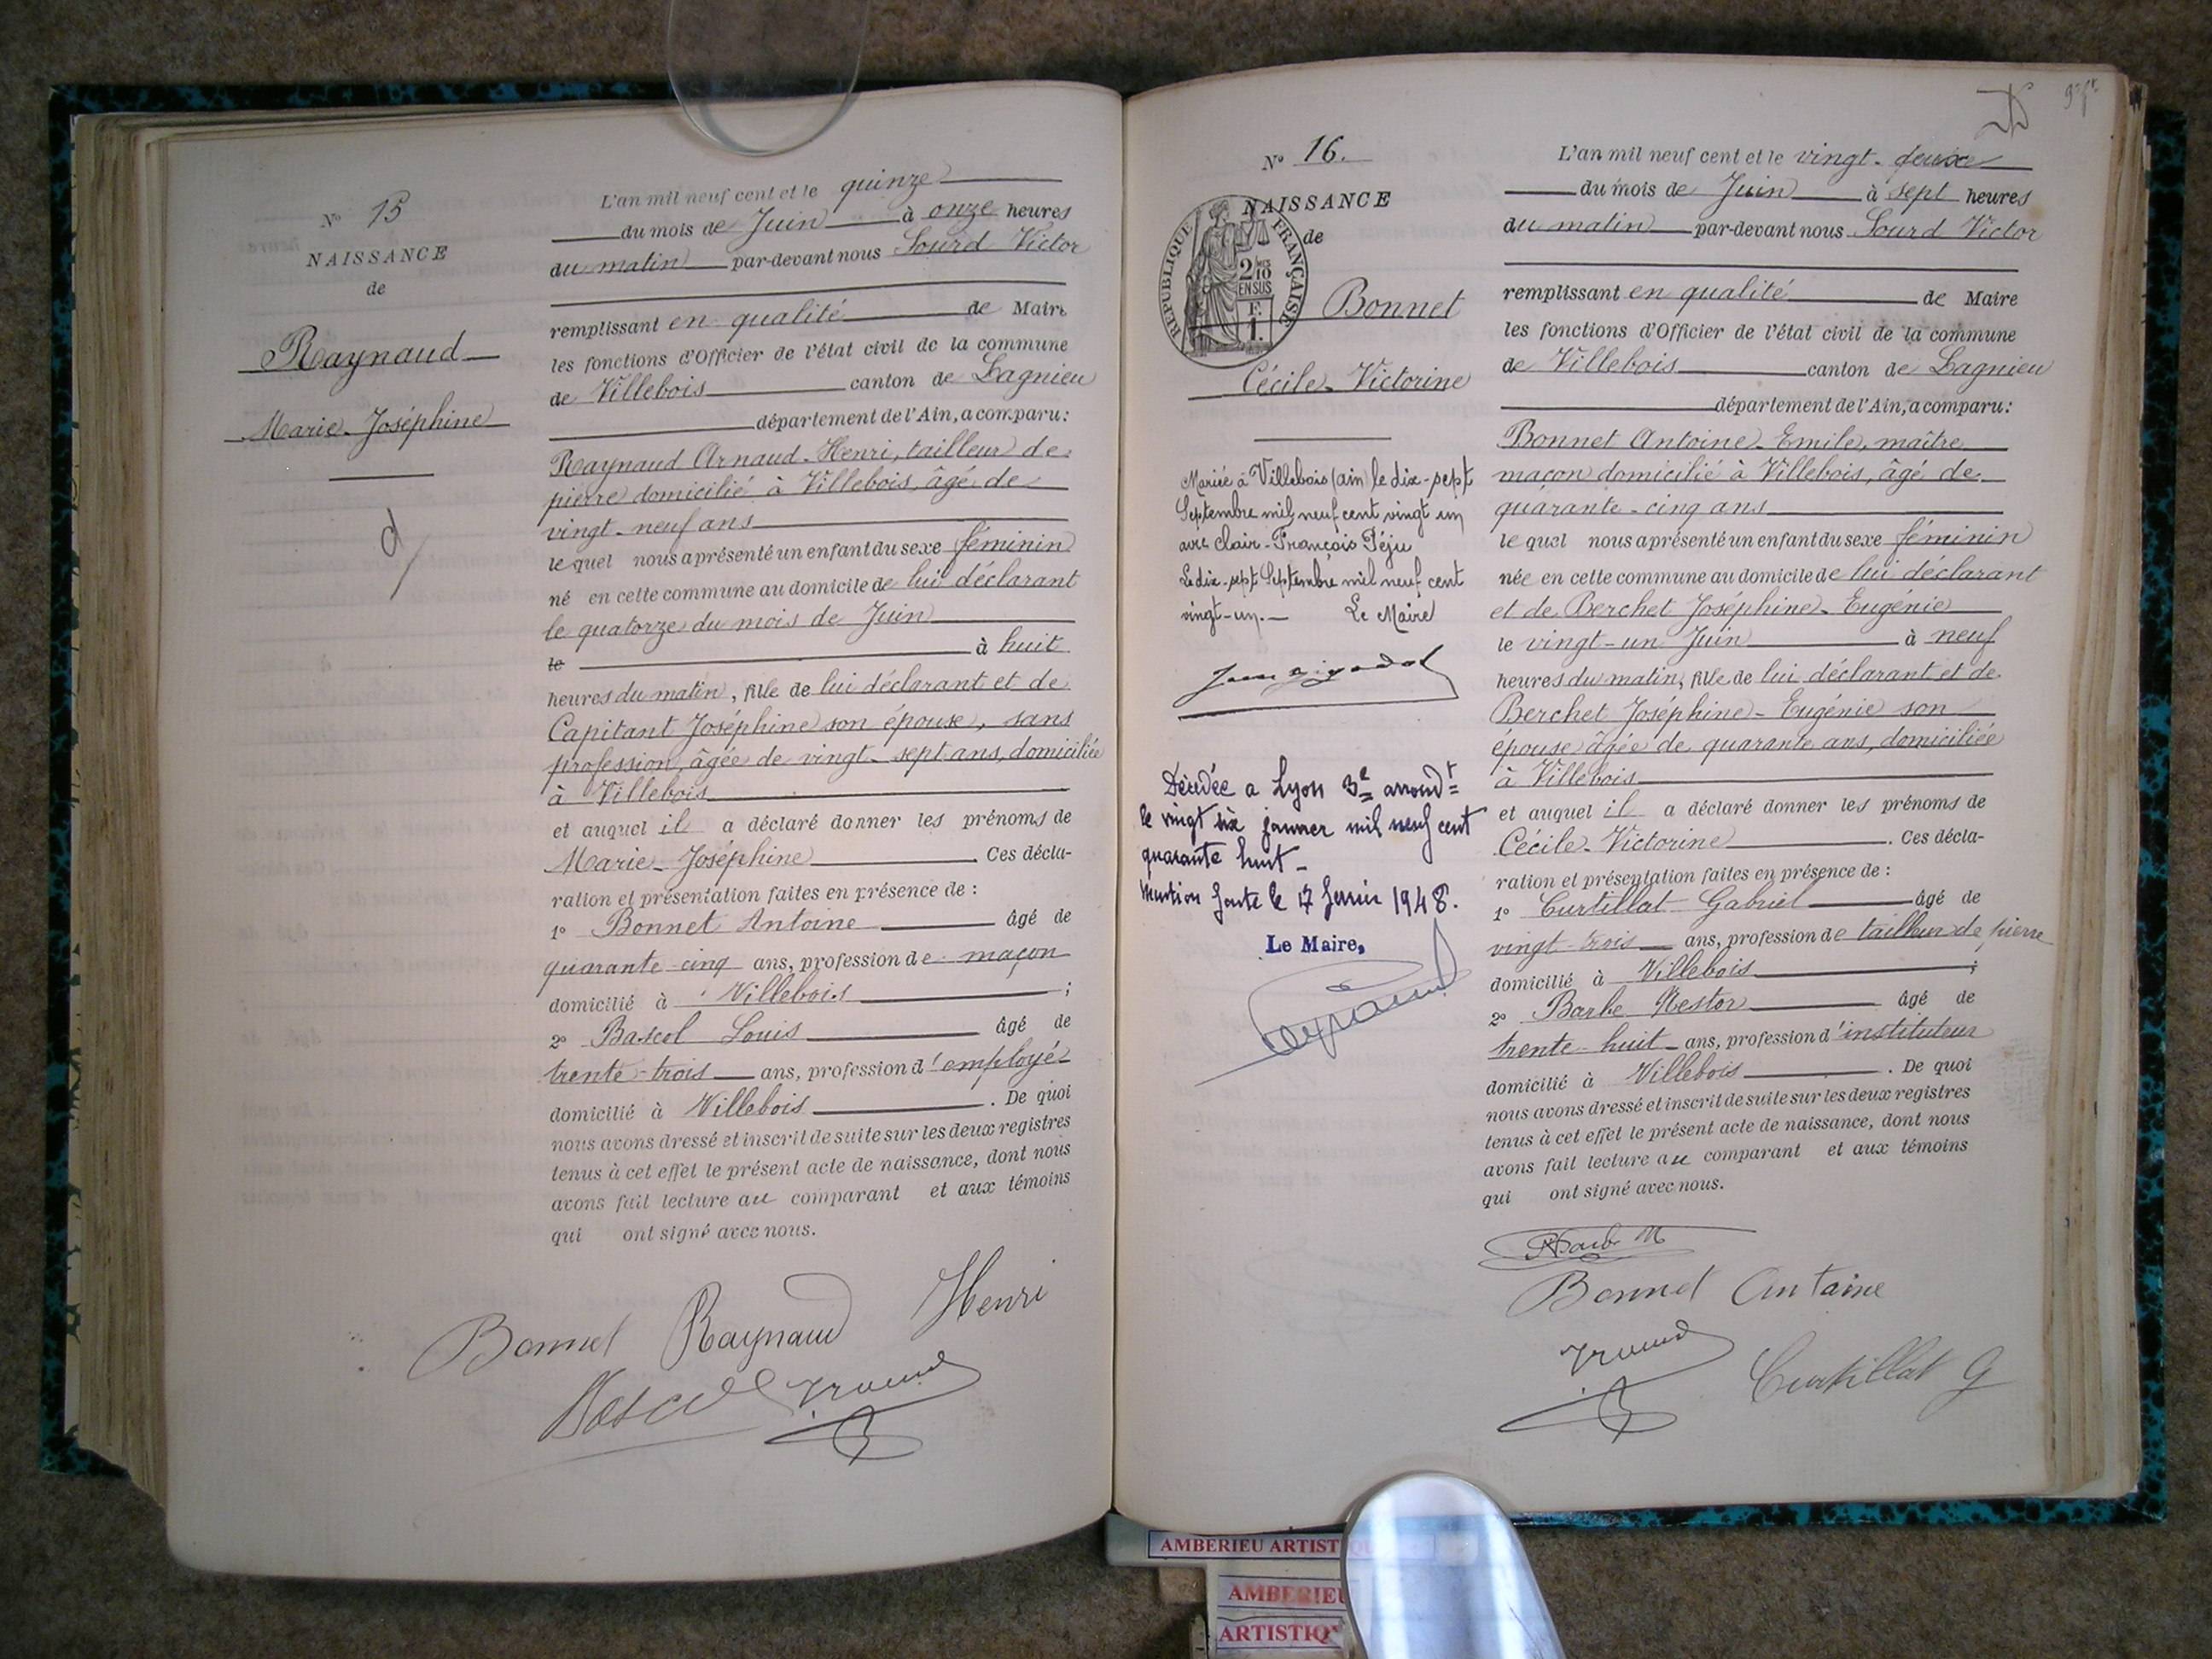 N° 15
NAISSANCE
de
Raynaud
Marie-Joséphine
L'an mil neuf cent et le quinze
du mois de Juin à onze heures
du matin par-devant nous Sourd Victor
remplissant en qualité de Maire
les fonctions d'Officier de l'état civil de la commune
de Villebois canton de Lagnieu
département de l'Ain, a comparu:
Raynaud Arnaud-Henri, tailleur de
pierre domicilié à Villebois, âgé de
vingt-neuf ans
le quel nous a présenté un enfant du sexe féminin
né en cette commune au domicile de lui déclarant
le quatorze du mois de Juin
le à huit
heures du matin, fille de lui déclarant et de
Capitant Joséphine son épouse, sans
profession, âgée de vingt-sept ans, domiciliée
à Villebois
et auquel il a déclaré donner les prénoms de
Marie-Joséphine. Ces décla-
ration et présentation faites en présence de :
1° Bonnet Antoine âgé de
quarante-cinq ans, profession de maçon
domicilié à Villebois ;
2° Bascol Louis âgé de
trente-trois ans, profession d'employé
domicilié à Villebois. De quoi
nous avons dressé et inscrit de suite sur les deux registres
tenus à cet effet le présent acte de naissance, dont nous
avons fait lecture au comparant et aux témoins
qui ont signé avec nous.
Bonnet Raynaud Henri
Bascol
N° 16.
NAISSANCE
de
RÉPUBLIQUE FRANÇAISE
2/10 EN SUS
F. 1.
Bonnet
Cécile-Victorine
Mariée à Villebois (ain) le dix-sept
Septembre mil neuf cent vingt un
avec Clair-François Péju
Le dix-sept Septembre mil neuf cent
vingt-un.— Le Maire
Décédée a Lyon 3e arrondt
le vingt six janvier mil neuf cent
quarante huit –
Mention faite le 17 1948.
Le Maire,
L'an mil neuf cent et le vingt-deux
du mois de Juin à sept heures
du matin par-devant nous Sourd Victor
remplissant en qualité de Maire
les fonctions d'Officier de l'état civil de la commune
de Villebois canton de Lagnieu
département de l'Ain, a comparu:
Bonnet Antoine-Emile, maître
maçon domicilié à Villebois, âgé de
quarante-cinq ans
le quel nous a présenté un enfant du sexe féminin
née en cette commune au domicile de lui déclarant
et de Berchet Joséphine-Eugénie
le vingt-un Juin à neuf
heures du matin, fille de lui déclarant et de
Berchet Joséphine-Eugénie son
épouse âgée de quarante ans, domiciliée
à Villebois
et auquel il a déclaré donner les prénoms de
Cécile-Victorine. Ces décla-
ration et présentation faites en présence de :
1° Curtillat Gabriel âgé de
vingt-trois ans, profession de tailleur de pierre
domicilié à Villebois ;
2° Barbe Nestor âgé de
trente-huit ans, profession d'instituteur
domicilié à Villebois. De quoi
nous avons dressé et inscrit de suite sur les deux registres
tenus à cet effet le présent acte de naissance, dont nous
avons fait lecture au comparant et aux témoins
qui ont signé avec nous.
Barbe N
Bonnet Antoine
Curtillat G
AMBERIEU ARTISTIQU
AMBERIEU
ARTISTIQ